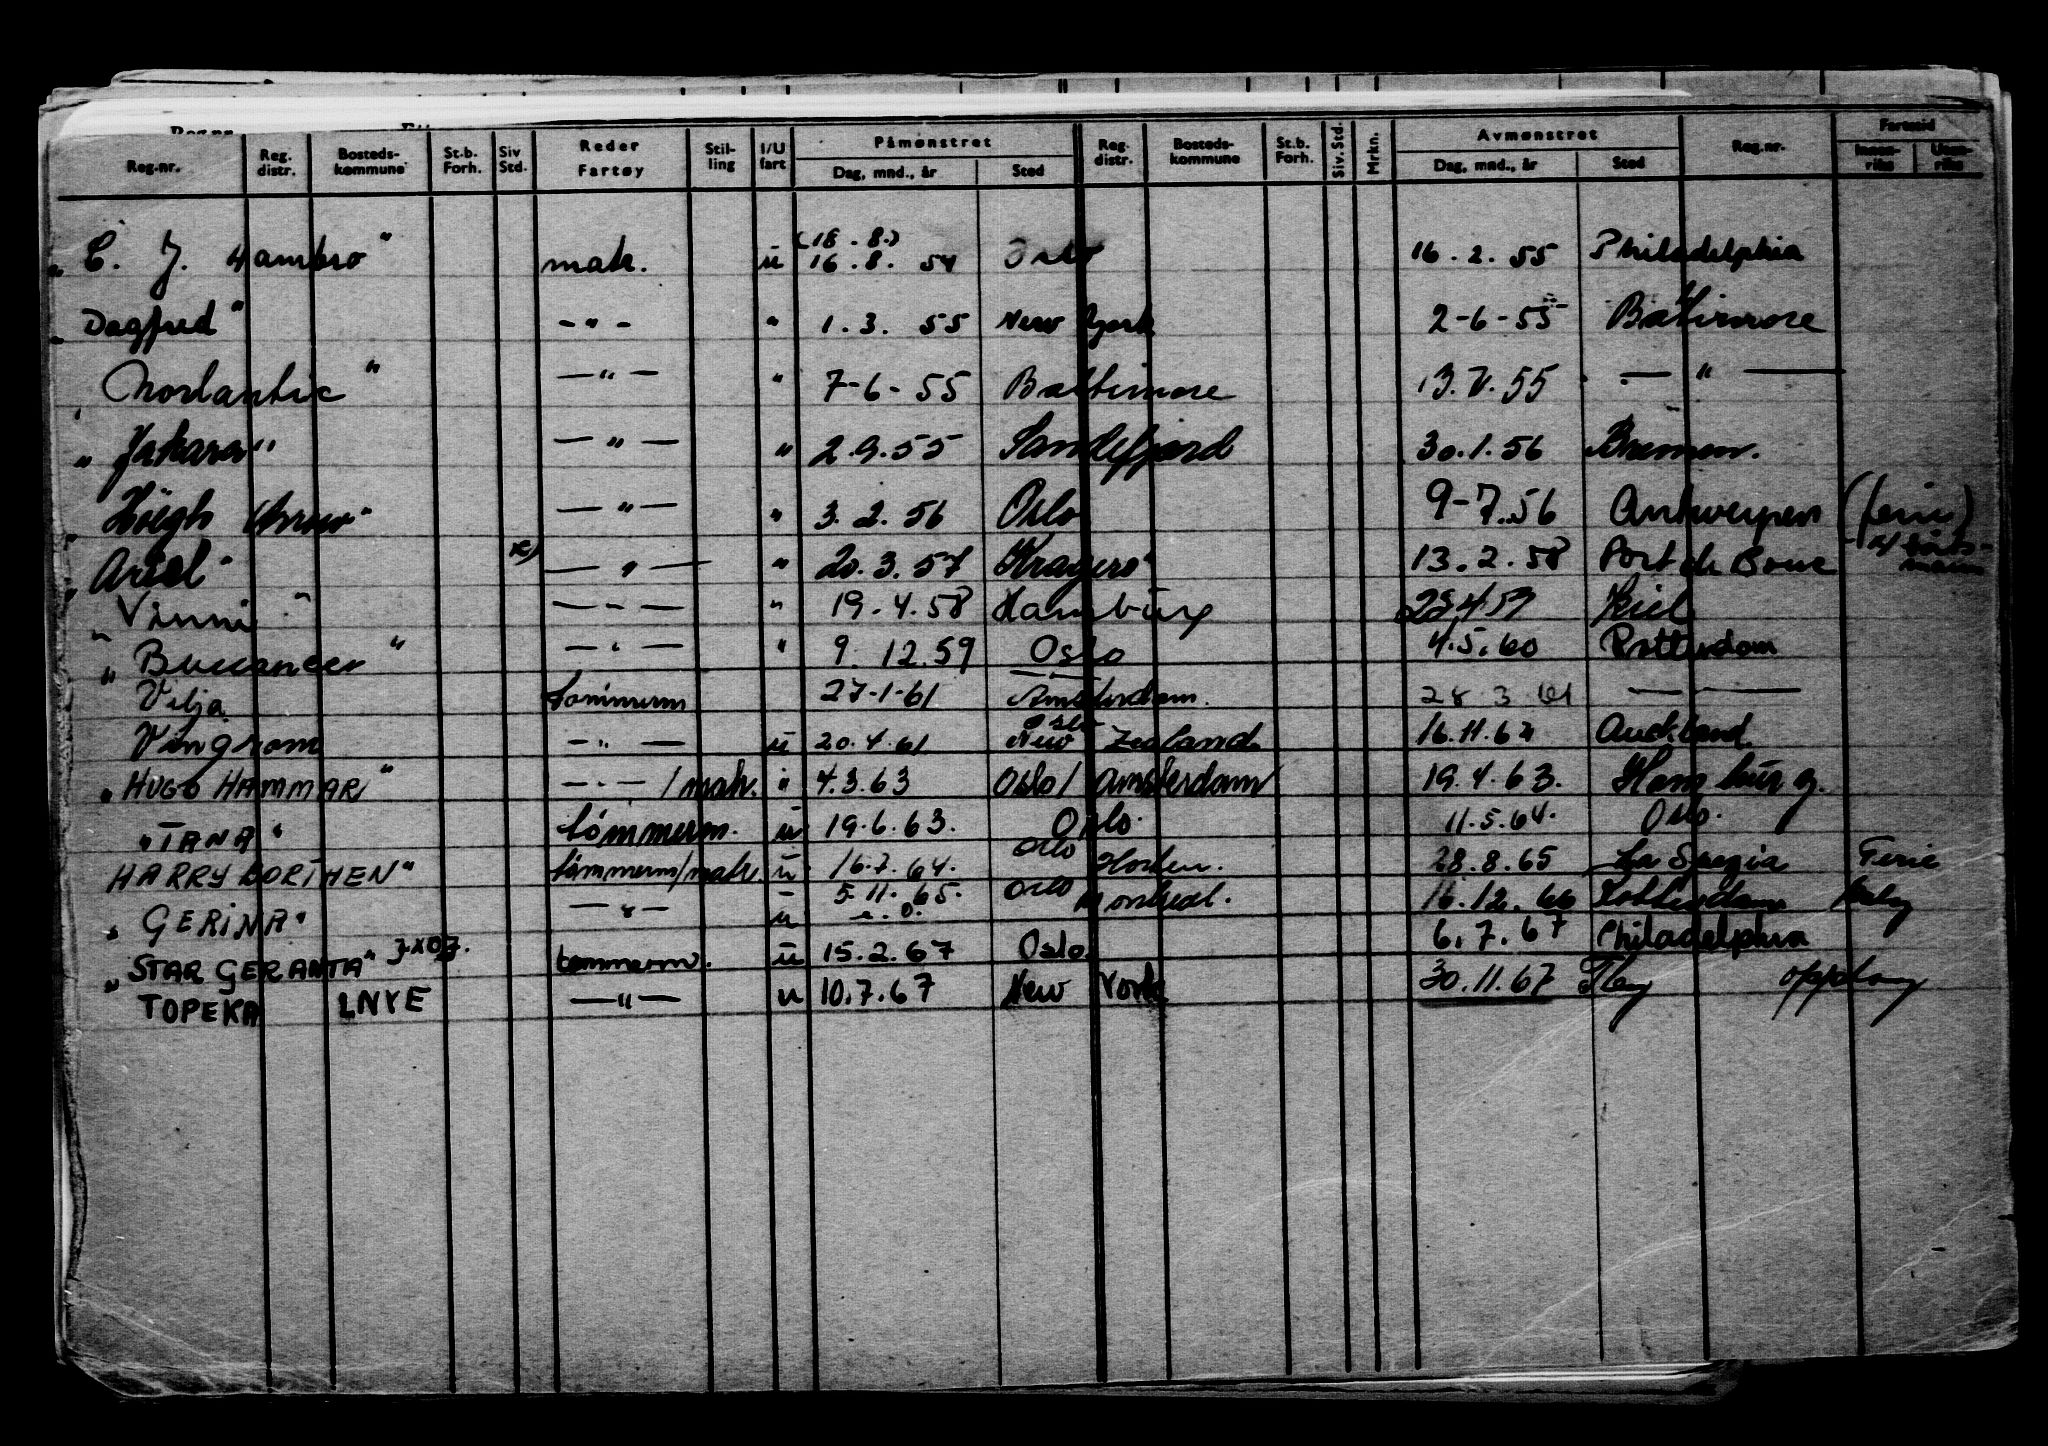 Reg.nr. Reg. distr. Bosteds-kommune St.b. Forh. Siv Std. Reder Fartøy Stil-ling I/U fart Påmønstret Dag, mnd., år Sted Reg. distr. Bosteds-kommune St.b. Forh. Siv. Std. Mrkn. Avmønstret Dag, mnd., år Sted Reg.nr. Fartstid Innen-riks Uten-riks
„ C. J. Hambro" matr. ü (18.8.) 16.8. 54 Oslo 16.2.55 Philadelphia
„ Dagfred" -"- " 1.3. 55 New York 2-6-55 Baltimore
„ Norlantic" -"- " 7-6-55 Baltimore 13.7.55 -"-
„ Jakara" -"- " 2.9.55 Sandefjord 30.1.56 Bremen.
„ Höegh Arrow" -"- " 3.2.56 Oslo 9-7.56 Antwerpen (ferie)
„ Ariel" x) -"- " 20.3.57 Kragerø 13.2.58 Port de Bouc x) båts-mann
„ Vinni" -"- " 19.4.58 Hamburg 4.59 Kiel
„ Buccaneer" -"- " 9.12.59 Oslo 4.5.60 Rotterdam
Vilja tømmerm 27-1-61 Amsterdam. 28 3 61 — —
Vingrom -"- ü 20.4.61 Oslo New Zealand 16.11.62 Auckland.
„ HUGO HAMMAR" -"- / matr. " 4.3.63 Oslo / Amsterdam 19.4.63. Hamburg.
„ TANA" tømmerm. ü 19.6.63. Oslo. 11.5.64. Oslo.
HARRY BORTHEN" tømmerm/matr. ü 16.7.64. Oslo Horten. 28.8.65 La Spezia Ferie
„ GERINA" -"- u 5.11.65. Oslo Montreal. 16.12.66 Rotterdam
„ STAR GERANTA" JXOZ. tømmerm. ü 15.2.67 Oslo 6.7.67 Philadelphia
TOPEKA LNYE -"- u 10.7.67 New York 30.11.67